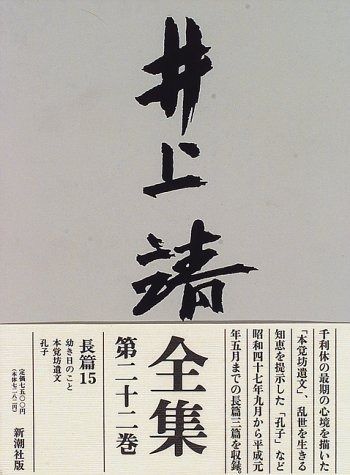 井上靖
全集
第二十二巻
千利休の最期の心境を描いた
「本覚坊遺文」、乱世を生きる
知恵を提示した「孔子」など
昭和四十七年九月から平成元
年五月までの長篇三篇を収録。
長篇15
幼き日のこと
本覚坊遺文
孔子
定価七五〇〇円
(本体七二八二円)
新潮社版